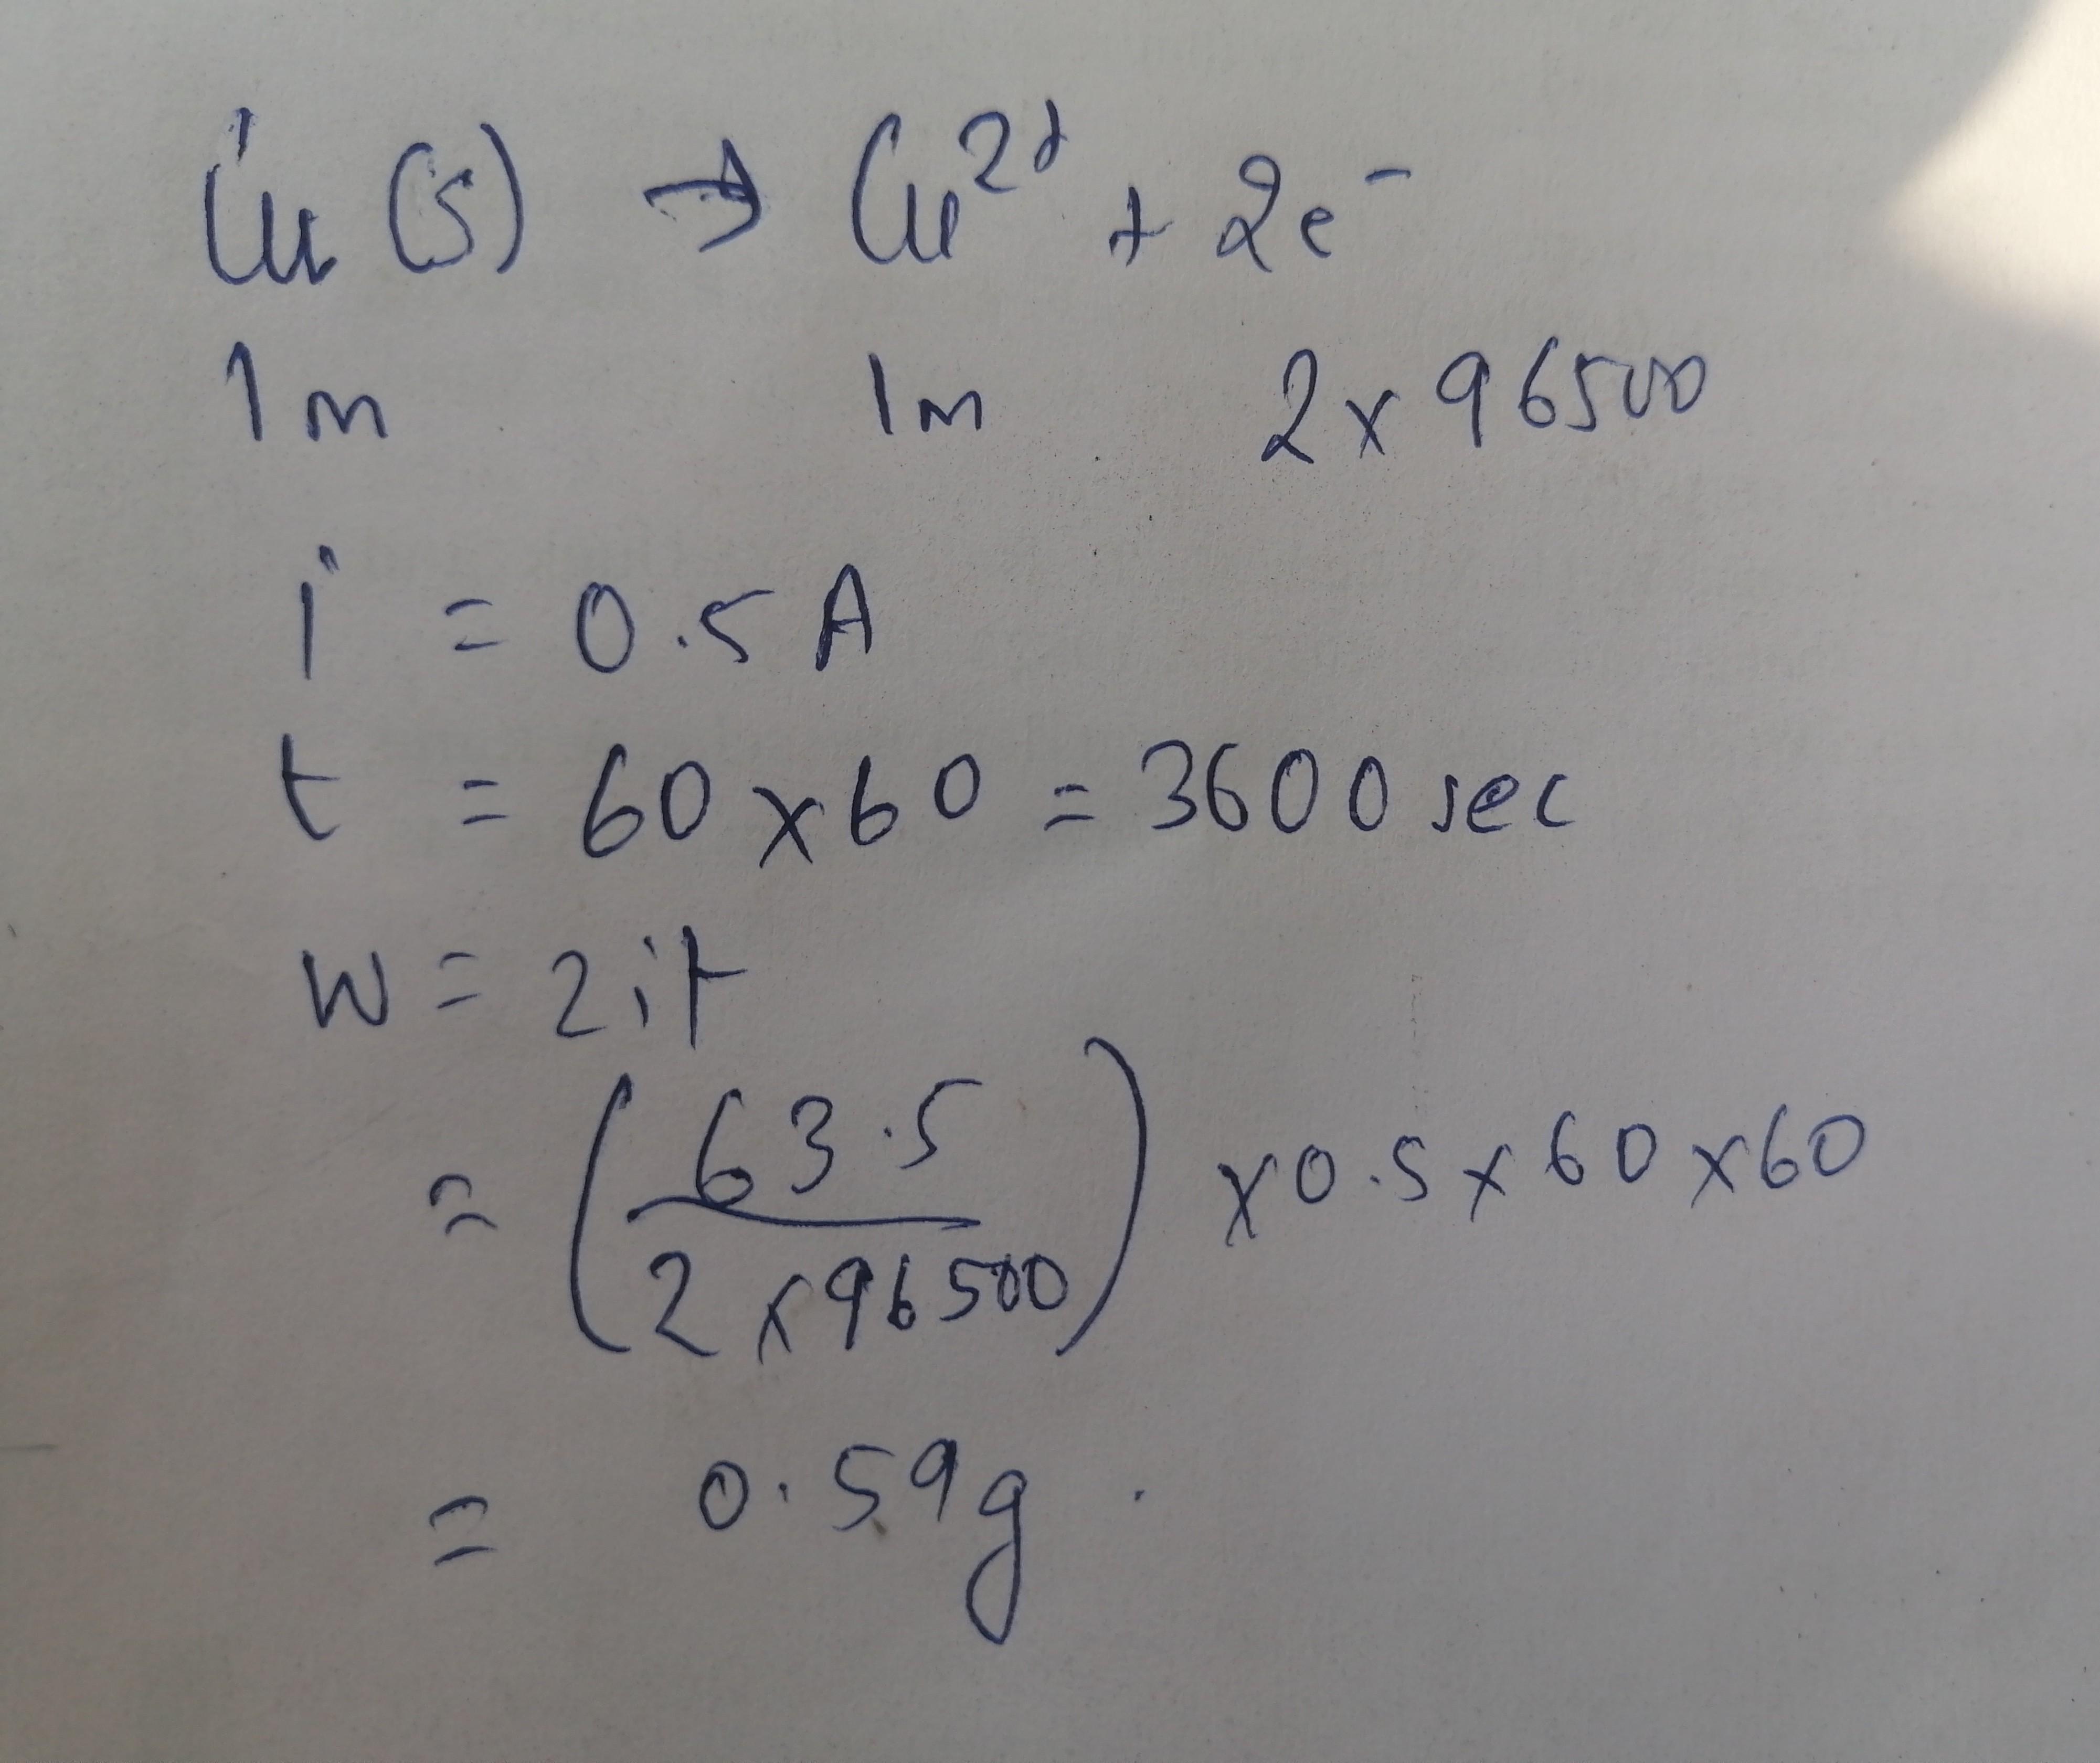 Cu (s) → Cu²⁺ + 2e⁻
1m 1m 2 x 96500
i = 0.5 A
t = 60 x 60 = 3600 sec
W = Zit
= (63.5 / 2 x 96500) x 0.5 x 60 x 60
= 0.59g.